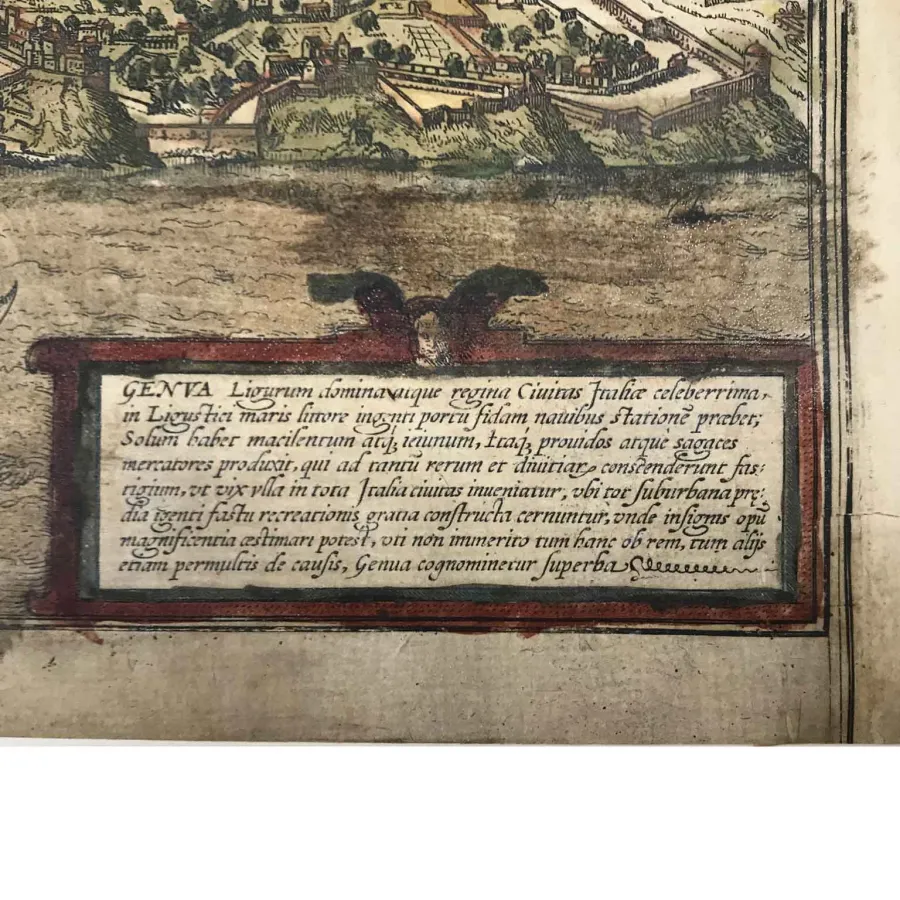 GENVA Ligurum domina atque regina Ciuitas Italiæ celeberrima,
in Ligustici maris littore ingenti portu fidam nauibus stationē præbet;
Solum habet macilentum atq; ieiunum, Itaq; prouidos atque sagaces
mercatores produxit, qui ad tantū rerum et diuitiaꝝ conscenderunt fas:
tigium, vt vix vlla in tota Italia ciuitas inueniatur, vbi tot suburbana prę:
dia īgenti fastu recreationis gratia constructa cernuntur, vnde insignis opū
magnificentia æstimari potest, vti non immerito tum hanc ob rem, tum alijs
etiam permultis de causis, Genua cognominetur superba